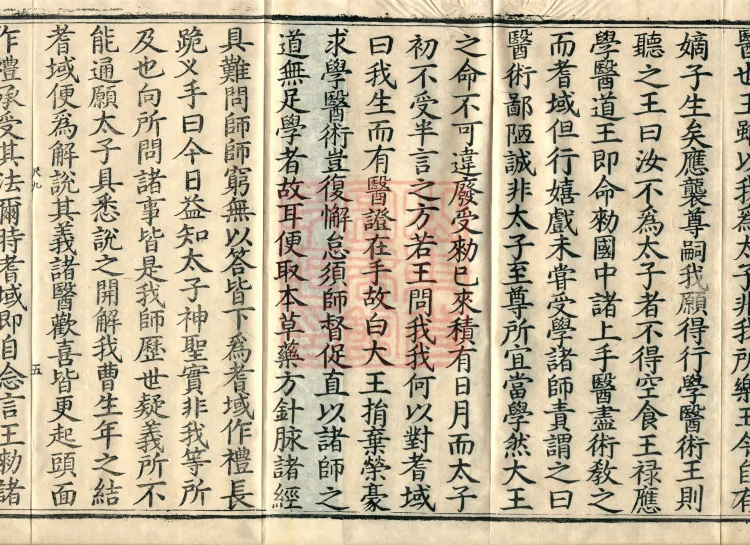 醫也王雖以我爲太子非我所樂王今自有
嫡子生矣應襲尊嗣我願得行學醫術王則
聽之王曰汝不爲太子者不得空食王祿應
學醫道王即命勑國中諸上手醫盡術教之
而耆域但行嬉戲未甞受學諸師責謂之曰
醫術鄙陋誠非太子至尊所宜當學然大王
之命不可違廢受勑已來積有日月而太子
初不受半言之方若王問我我何以對耆域
曰我生而有醫證在手故白大王捐棄榮豪
求學醫術豈復懈怠須師督促直以諸師之
道無足學者故耳便取本草藥方針脉諸經
具難問師師窮無以答皆下爲耆域作禮長
跪叉手曰今日益知太子神聖實非我等所
及也向所問諸事皆是我師歷世疑義所不
能通願太子具悉說之開解我曹生年之結
耆域便爲解說其義諸醫歡喜皆更起頭面
五
作禮承受其法爾時耆域即自念言王勑諸